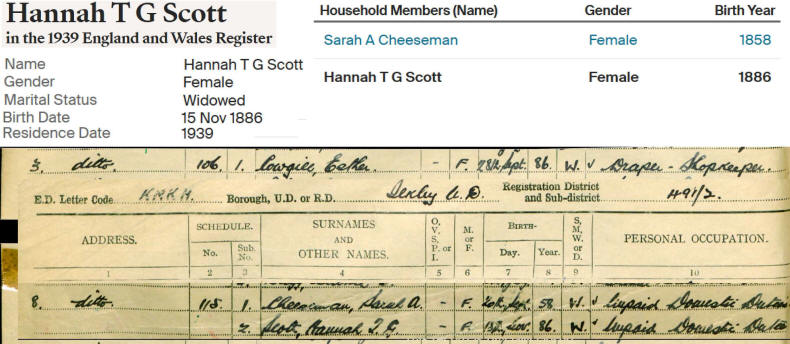 Hannah T G Scott
in the 1939 England and Wales Register
Name Hannah T G Scott
Gender Female
Marital Status Widowed
Birth Date 15 Nov 1886
Residence Date 1939
Household Members (Name) Gender Birth Year
Sarah A Cheeseman Female 1858
Hannah T G Scott Female 1886
3. ditto 106. 1. Esther. - F. Sept. 86. W. Draper - Shopkeeper.
E.D. Letter Code K.R.K.H. Borough, U.D. or R.D. U.D. Registration District and Sub-district 491/2.
ADDRESS. SCHEDULE. No. Sub. No. SURNAMES AND OTHER NAMES. O, V, S, P, or I. M. or F. BIRTH- Day. Year. S, M, W, or D. PERSONAL OCCUPATION.
1 2 3 4 5 6 7 8 9 10
8. ditto 115. 1. Cheeseman, Sarah A. - F. Sept. 58 W. Unpaid Domestic Duties
2. Scott, Hannah T. G. - F. 15 Nov. 86. W. Unpaid Domestic Duties